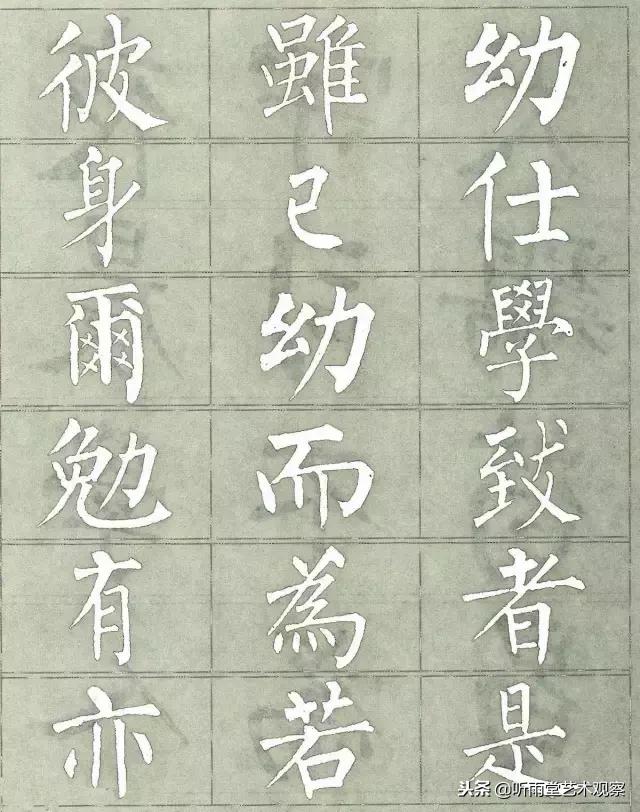 彼雖幼
身已仕
爾幼學
勉而致
有為者
亦若是
头条 @听雨堂艺术观察